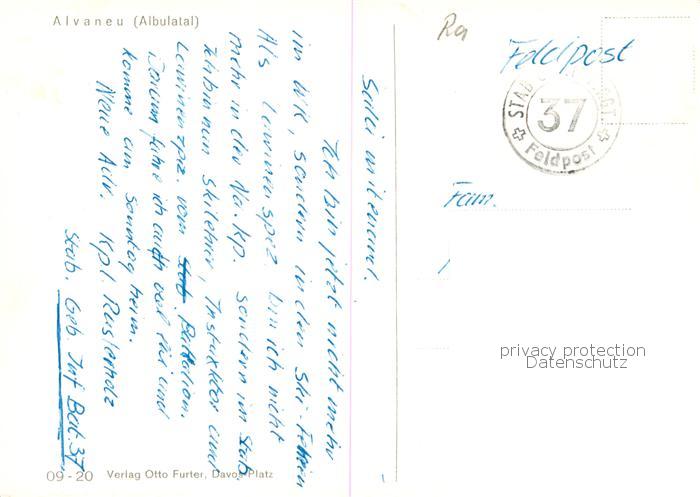 Alvaneu (Albulatal)
Salü mitenand.
Ich bin jetzt nicht mehr
im WK, sondern in den Ski-Ferien
Als Lawinenspez bin ich nicht
mehr in der Na. Kp. sondern im Stab
Ich bin nun Skilehrer, Instruktor und
Lawinenspez. vom Stab. Battalion.
Darum fahre ich auch viel Ski und
komme am Sonntag heim.
Neue Adr. Kpl.
Stab. Geb Inf Bat 37.
09-20 Verlag Otto Furter, Davos-Platz
Ra
Feldpost
STAB
37
Feldpost
Fam.
privacy protection
Datenschutz